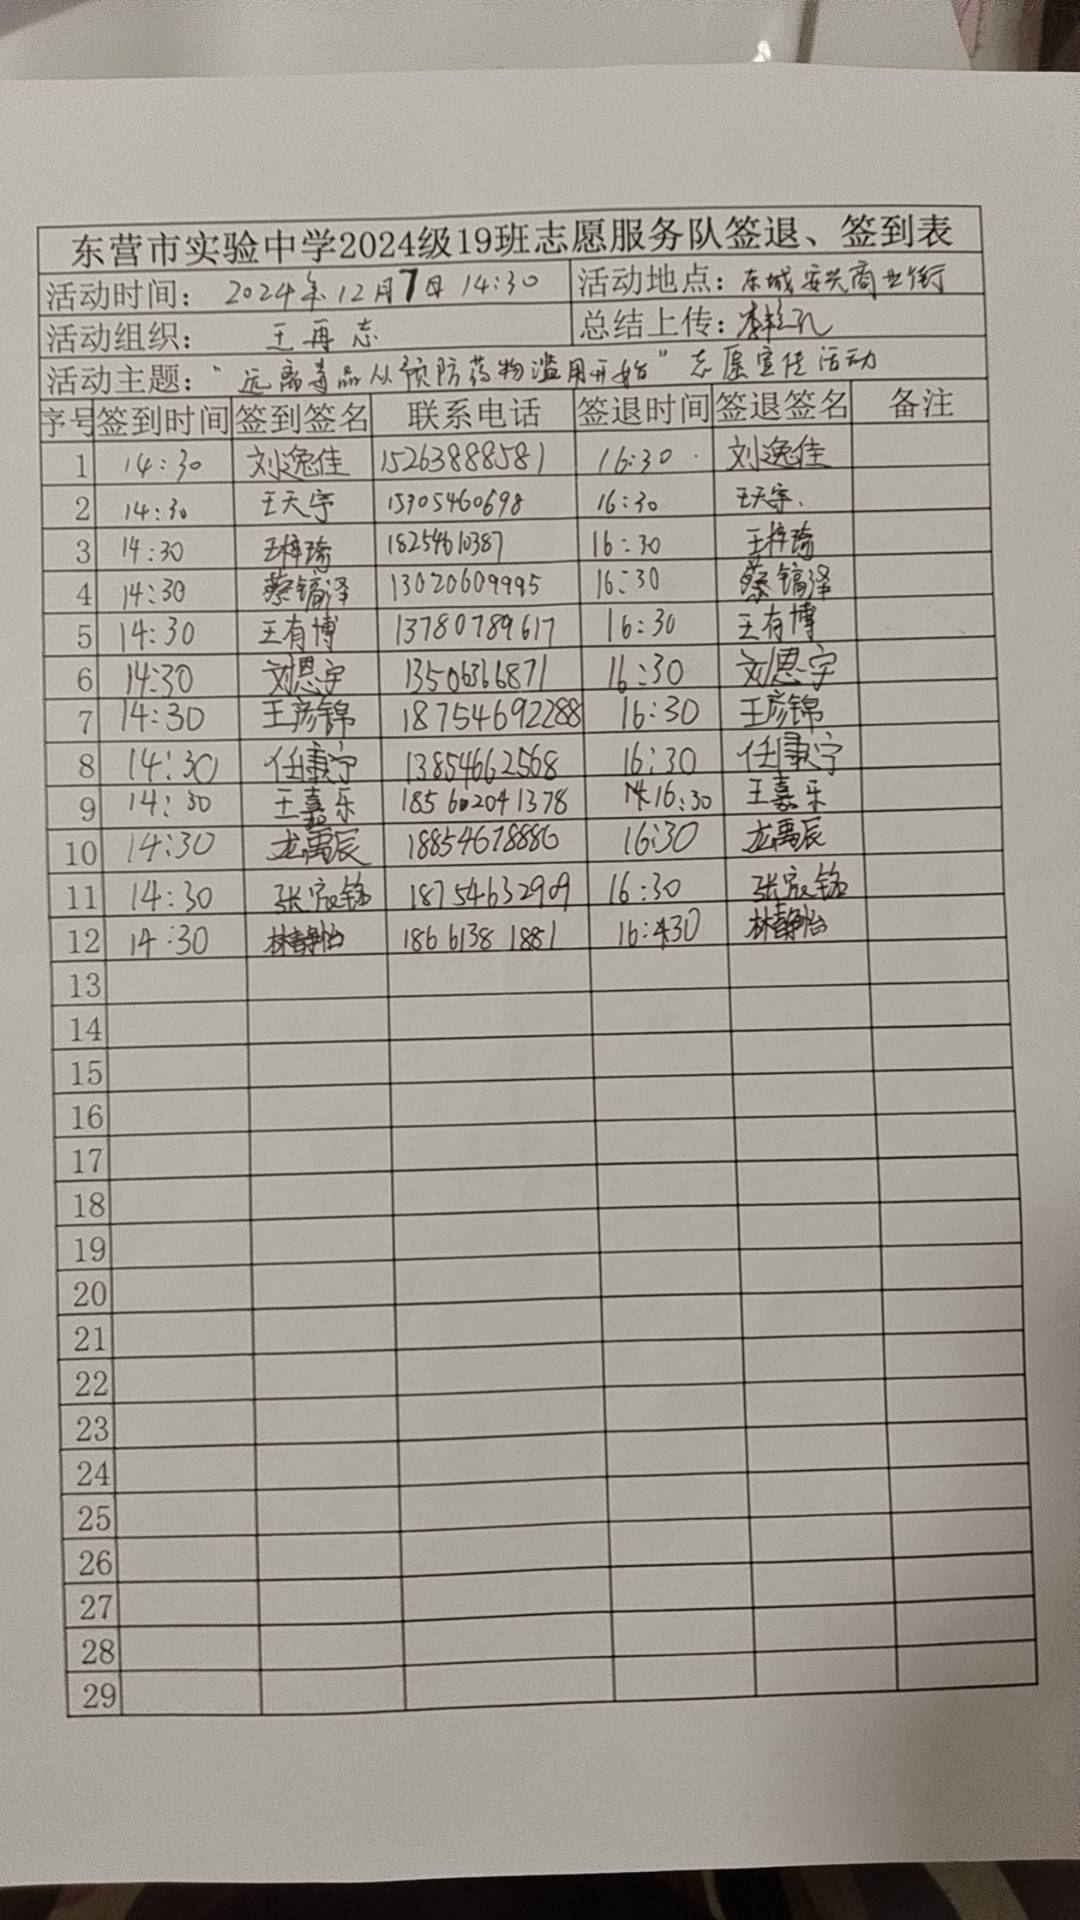 东营市实验中学2024级19班志愿服务队签退、签到表
活动时间：2024年12月7日 14:30 活动地点：东城安兴商业街
活动组织：王再志 总结上传：
活动主题：“远离毒品从预防药物滥用开始”志愿宣传活动
序号 签到时间 签到签名 联系电话 签退时间 签退签名 备注
1 14:30 刘逸佳 15263888581 16:30 刘逸佳
2 14:30 王天宇 15305460698 16:30 王天宇
3 14:30 王梓瑜 18254610387 16:30 王梓瑜
4 14:30 蔡镐泽 13020609995 16:30 蔡镐泽
5 14:30 王有博 13780789617 16:30 王有博
6 14:30 刘恩宇 13506366871 16:30 刘恩宇
7 14:30 王彦锦 18754692288 16:30 王彦锦
8 14:30 任秉宁 13854662568 16:30 任秉宁
9 14:30 王嘉乐 18562041378 16:30 王嘉乐
10 14:30 龙禹辰 18854678886 16:30 龙禹辰
11 14:30 张宸铭 18754632909 16:30 张宸铭
12 14:30 林静怡 18661381881 16:30 林静怡
13
14
15
16
17
18
19
20
21
22
23
24
25
26
27
28
29